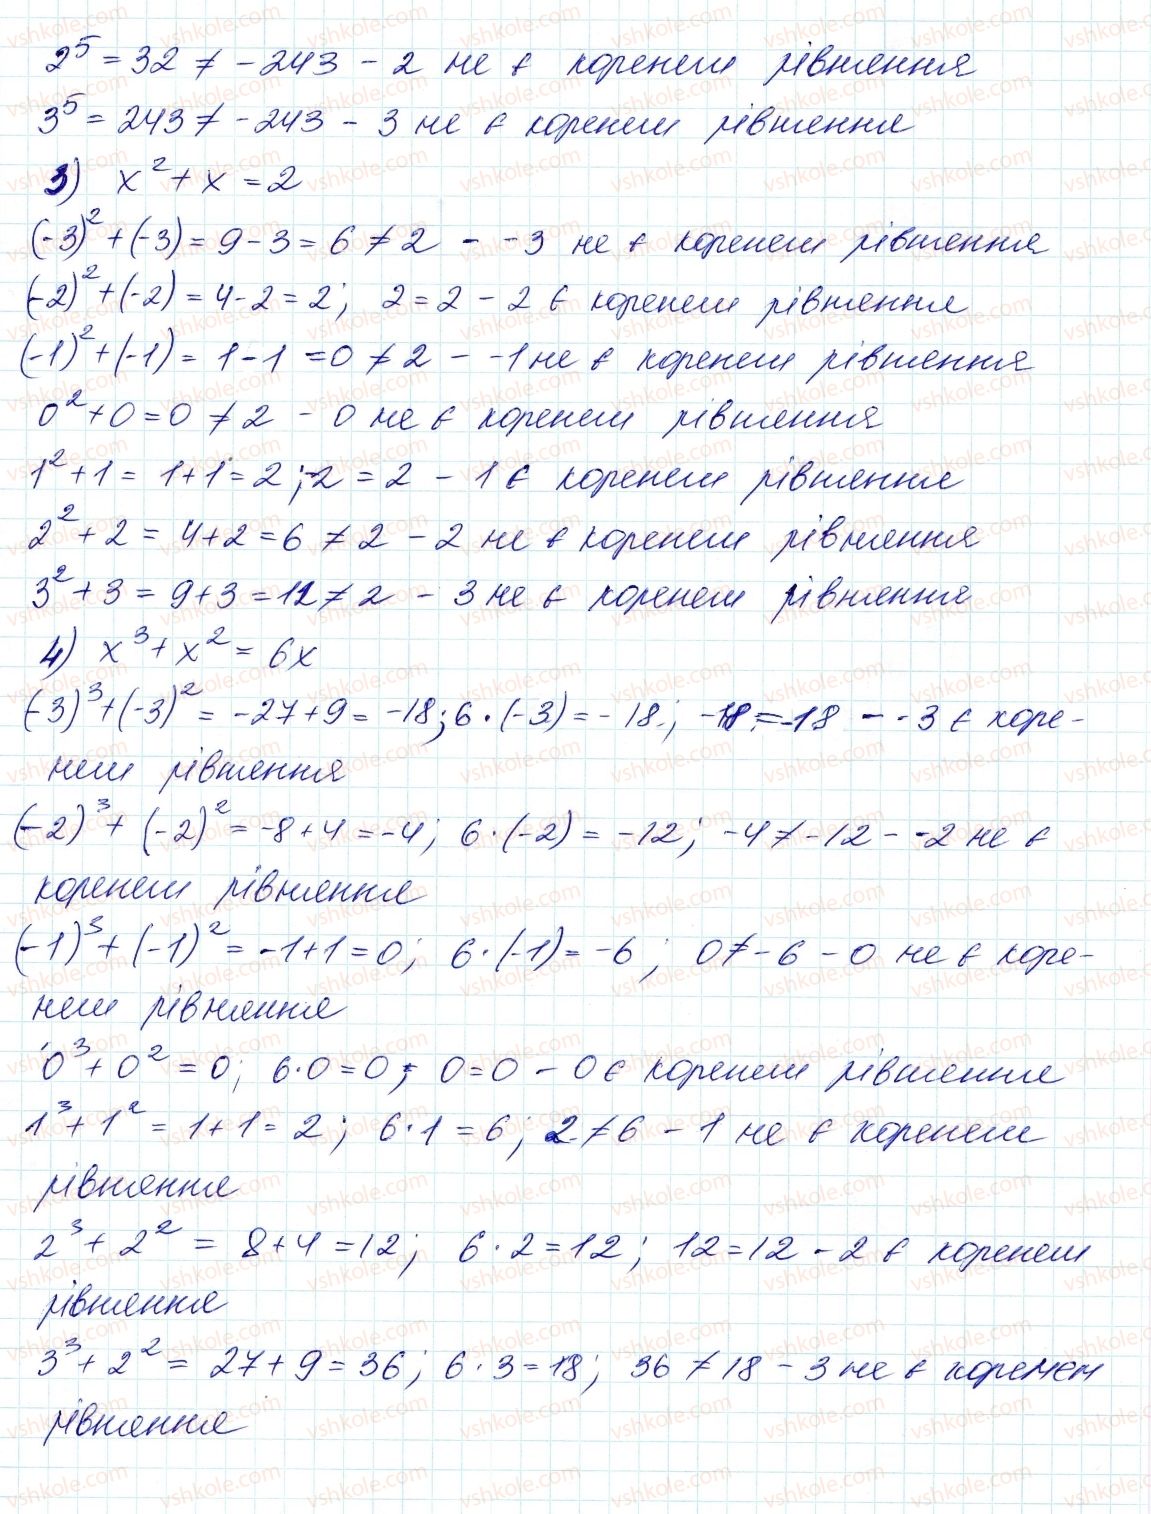 2⁵ = 32 ≠ -243 - 2 не є коренем рівняння
3⁵ = 243 ≠ -243 - 3 не є коренем рівняння
3) x² + x = 2
(-3)² + (-3) = 9 - 3 = 6 ≠ 2 - -3 не є коренем рівняння
(-2)² + (-2) = 4 - 2 = 2; 2 = 2 - 2 є коренем рівняння
(-1)² + (-1) = 1 - 1 = 0 ≠ 2 - -1 не є коренем рівняння
0² + 0 = 0 ≠ 2 - 0 не є коренем рівняння
1² + 1 = 1 + 1 = 2; 2 = 2 - 1 є коренем рівняння
2² + 2 = 4 + 2 = 6 ≠ 2 - 2 не є коренем рівняння
3² + 3 = 9 + 3 = 12 ≠ 2 - 3 не є коренем рівняння
4) x³ + x² = 6x
(-3)³ + (-3)² = -27 + 9 = -18; 6 · (-3) = -18; -18 = -18 - -3 є коре-
нем рівняння
(-2)³ + (-2)² = -8 + 4 = -4; 6 · (-2) = -12; -4 ≠ -12 - -2 не є
коренем рівняння
(-1)³ + (-1)² = -1 + 1 = 0; 6 · (-1) = -6; 0 ≠ -6 - 0 не є коре-
нем рівняння
0³ + 0² = 0; 6 · 0 = 0; 0 = 0 - 0 є коренем рівняння
1³ + 1² = 1 + 1 = 2; 6 · 1 = 6; 2 ≠ 6 - 1 не є коренем
рівняння
2³ + 2² = 8 + 4 = 12; 6 · 2 = 12; 12 = 12 - 2 є коренем
рівняння
3³ + 2² = 27 + 9 = 36; 6 · 3 = 18; 36 ≠ 18 - 3 не є коренем
рівняння